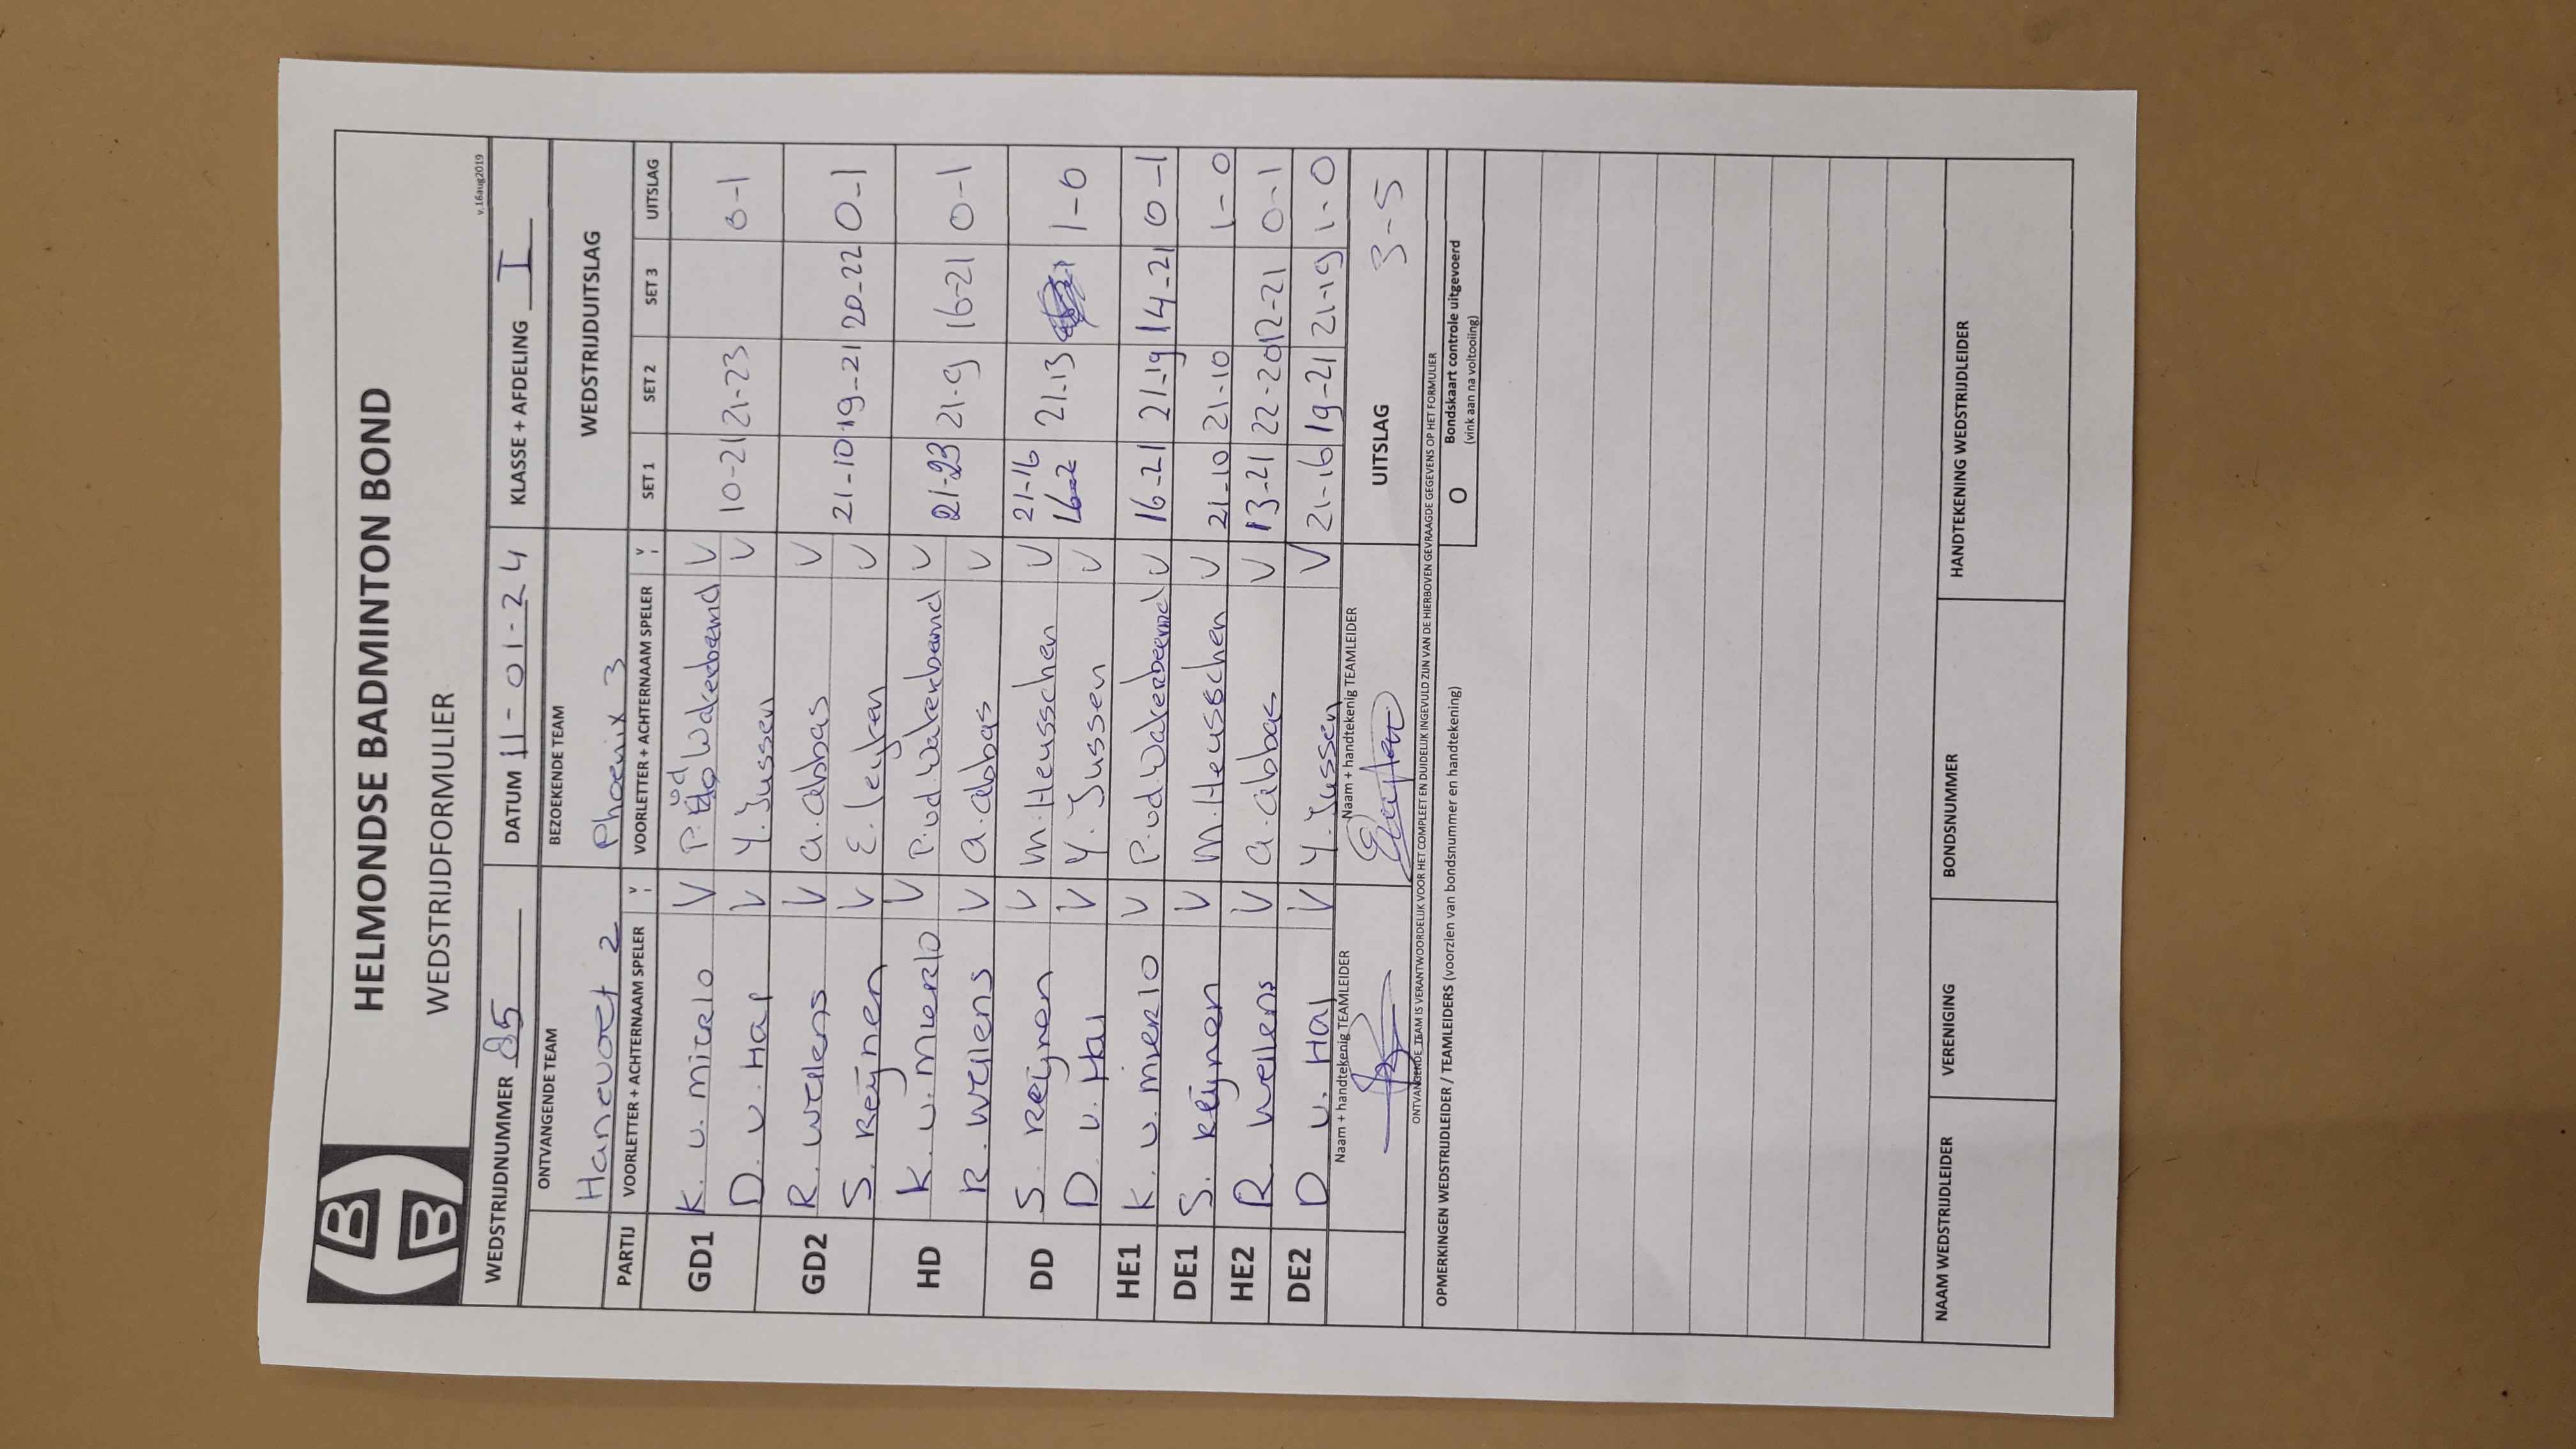 HELMONDSE BADMINTON BOND
WEDSTRIJDFORMULIER
v.16aug2019
WEDSTRIJDNUMMER 85 DATUM 11-01-24 KLASSE + AFDELING I
ONTVANGENDE TEAM BEZOEKENDE TEAM WEDSTRIJDUITSLAG
Hanevoet 2 Phoenix 3
PARTIJ VOORLETTER + ACHTERNAAM SPELER V VOORLETTER + ACHTERNAAM SPELER V SET 1 SET 2 SET 3 UITSLAG
GD1 K. v. mierlo V P. vd Wakerbeemd V
D. v. Hal V Y. Jussen V 10-21 21-23 0-1
GD2 R. Weilens V a. abbas V
S. Reijnen V E. leijten V 21-10 19-21 20-22 0-1
HD K. v. Mierlo V P. vd. Wakerbeemd V
R. Weilens V a. abbas V 21-23 21-9 16-21 0-1
DD S. Reijnen V M. Heusschen V 21-16
D. v. Hal V Y. Jussen V 21-13 1-0
HE1 K. v. mierlo V P. vd. Wakerbeemd V 16-21 21-19 14-21 0-1
DE1 S. Reijnen V M. Heusschen V 21-10 21-10 1-0
HE2 R. Weilens V a. abbas V 13-21 22-20 12-21 0-1
DE2 D v. Hal V Y. Jussen V 21-16 19-21 21-19 1-0
Naam + handtekenig TEAMLEIDER Naam + handtekenig TEAMLEIDER UITSLAG 3-5
ONTVANGENDE TEAM IS VERANTWOORDELIJK VOOR HET COMPLEET EN DUIDELIJK INGEVULD ZIJN VAN DE HIERBOVEN GEVRAAGDE GEGEVENS OP HET FORMULIER
OPMERKINGEN WEDSTRIJDLEIDER / TEAMLEIDERS (voorzien van bondsnummer en handtekening) O Bondskaart controle uitgevoerd
(vink aan na voltooiing)
NAAM WEDSTRIJDLEIDER VERENIGING BONDSNUMMER HANDTEKENING WEDSTRIJDLEIDER